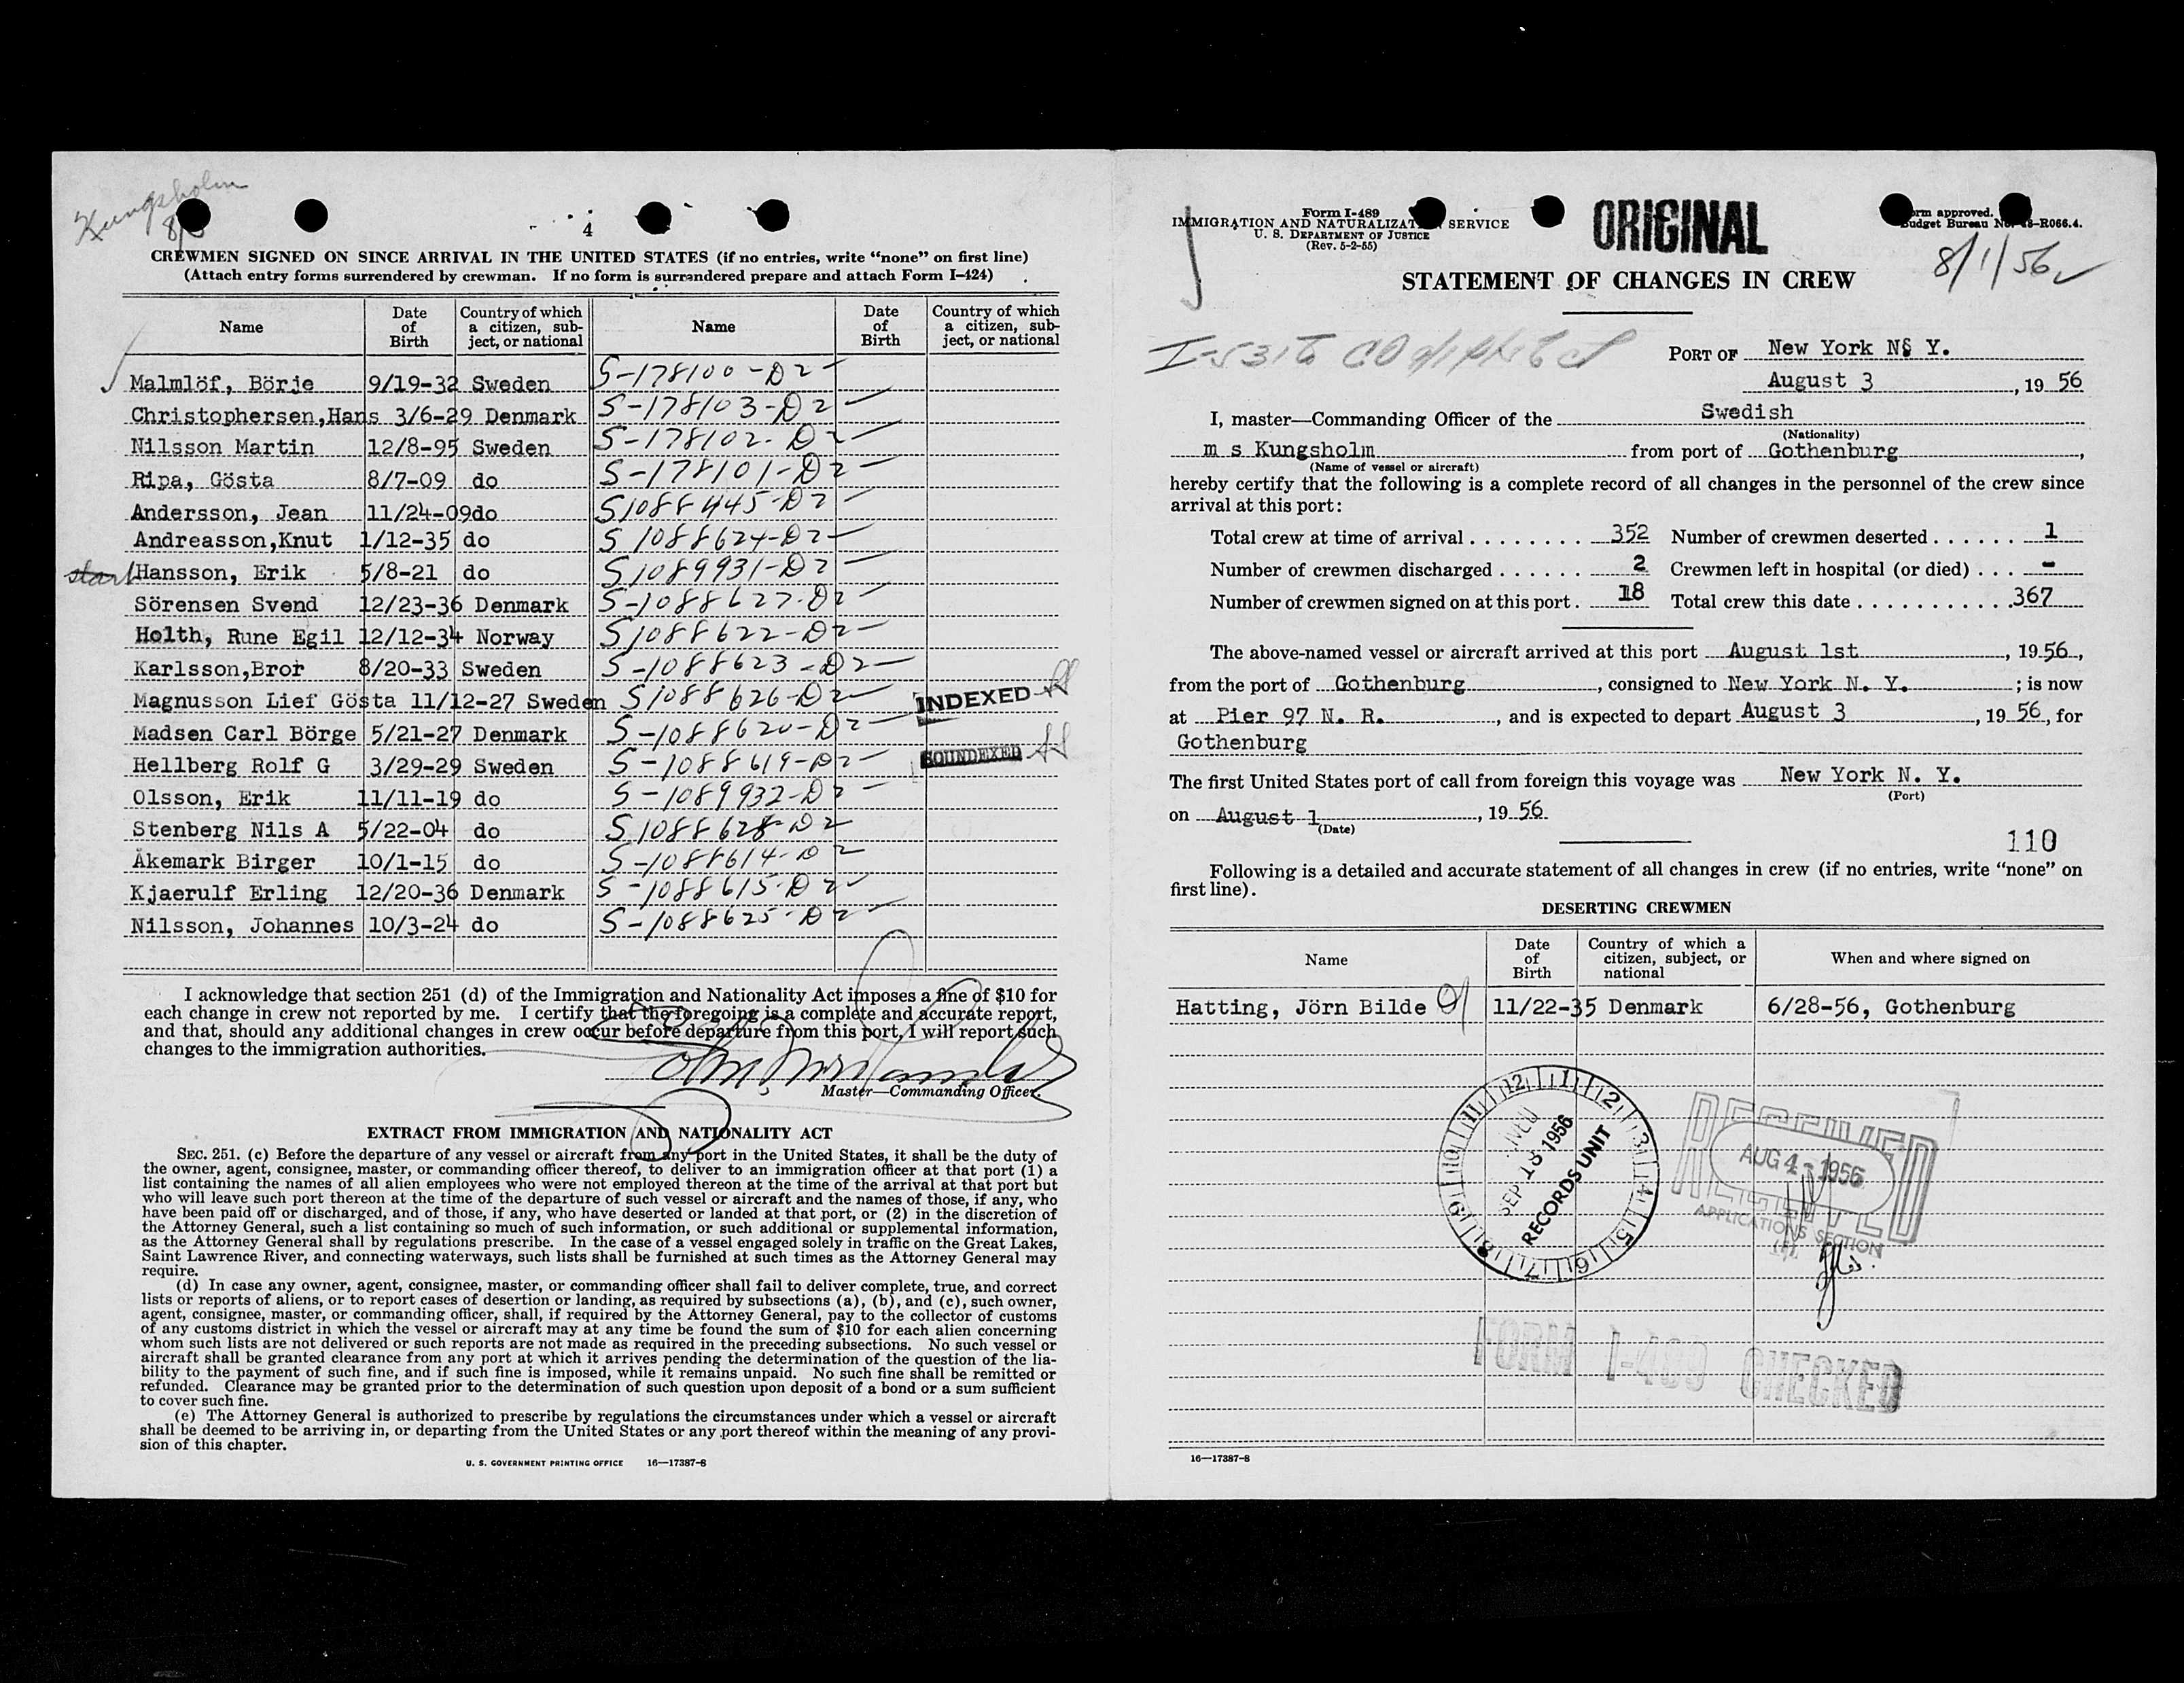 Kungsholm
4
CREWMEN SIGNED ON SINCE ARRIVAL IN THE UNITED STATES (if no entries, write “none” on first line)
(Attach entry forms surrendered by crewman. If no form is surrendered prepare and attach Form I–424)
Name Date of Birth Country of which a citizen, subject, or national Name Date of Birth Country of which a citizen, subject, or national
Malmlöf, Börje 9/19-32 Sweden S-178100-D2
Christophersen,Hans 3/6-29 Denmark S-178103-D2
Nilsson Martin 12/8-95 Sweden S-178102-D2
Ripa, Gösta 8/7-09 do S-178101-D2
Andersson, Jean 11/24-09do S1088445-D2
Andreasson,Knut 1/12-35 do S 1088624-D2
start Hansson, Erik 5/8-21 do S1089931-D2
Sörensen Svend 12/23-36 Denmark S-1088627-D2
Holth, Rune Egil 12/12-34 Norway S1088622-D2
Karlsson,Bror 8/20-33 Sweden S-1088623-D2
Magnusson Lief Gösta 11/12-27 Sweden S1088626-D2 INDEXED
Madsen Carl Börge 5/21-27 Denmark S-1088620-D2
Hellberg Rolf G 3/29-29 Sweden S-1088619-D2 SOUNDEXED
Olsson, Erik 11/11-19 do S-1089932-D2
Stenberg Nils A 5/22-04 do S1088628-D2
Åkemark Birger 10/1-15 do S-1088614-D2
Kjaerulf Erling 12/20-36 Denmark S-1088615-D2
Nilsson, Johannes 10/3-24 do S-1088625-D2
I acknowledge that section 251 (d) of the Immigration and Nationality Act imposes a fine of $10 for
each change in crew not reported by me. I certify that the foregoing is a complete and accurate report,
and that, should any additional changes in crew occur before departure from this port, I will report such
changes to the immigration authorities.
Master—Commanding Officer.
EXTRACT FROM IMMIGRATION AND NATIONALITY ACT
SEC. 251. (c) Before the departure of any vessel or aircraft from any port in the United States, it shall be the duty of
the owner, agent, consignee, master, or commanding officer thereof, to deliver to an immigration officer at that port (1) a
list containing the names of all alien employees who were not employed thereon at the time of the arrival at that port but
who will leave such port thereon at the time of the departure of such vessel or aircraft and the names of those, if any, who
have been paid off or discharged, and of those, if any, who have deserted or landed at that port, or (2) in the discretion of
the Attorney General, such a list containing so much of such information, or such additional or supplemental information,
as the Attorney General shall by regulations prescribe. In the case of a vessel engaged solely in traffic on the Great Lakes,
Saint Lawrence River, and connecting waterways, such lists shall be furnished at such times as the Attorney General may
require.
(d) In case any owner, agent, consignee, master, or commanding officer shall fail to deliver complete, true, and correct
lists or reports of aliens, or to report cases of desertion or landing, as required by subsections (a), (b), and (c), such owner,
agent, consignee, master, or commanding officer, shall, if required by the Attorney General, pay to the collector of customs
of any customs district in which the vessel or aircraft may at any time be found the sum of $10 for each alien concerning
whom such lists are not delivered or such reports are not made as required in the preceding subsections. No such vessel or
aircraft shall be granted clearance from any port at which it arrives pending the determination of the question of the lia-
bility to the payment of such fine, and if such fine is imposed, while it remains unpaid. No such fine shall be remitted or
refunded. Clearance may be granted prior to the determination of such question upon deposit of a bond or a sum sufficient
to cover such fine.
(e) The Attorney General is authorized to prescribe by regulations the circumstances under which a vessel or aircraft
shall be deemed to be arriving in, or departing from the United States or any port thereof within the meaning of any provi-
sion of this chapter.
U. S. GOVERNMENT PRINTING OFFICE 16—17387-8
Form I-489
IMMIGRATION AND NATURALIZATION SERVICE
U. S. DEPARTMENT OF JUSTICE
(Rev. 5-2-55)
ORIGINAL
Form approved.
Budget Bureau No. 43-R066.4.
8/1/56
STATEMENT OF CHANGES IN CREW
PORT OF New York N§ Y.
August 3, 19 56
I, master—Commanding Officer of the Swedish
(Nationality)
m s Kungsholm from port of Gothenburg,
(Name of vessel or aircraft)
hereby certify that the following is a complete record of all changes in the personnel of the crew since
arrival at this port:
Total crew at time of arrival 352 Number of crewmen deserted 1
Number of crewmen discharged 2 Crewmen left in hospital (or died) -
Number of crewmen signed on at this port. 18 Total crew this date 367
The above-named vessel or aircraft arrived at this port August 1st, 1956,
from the port of Gothenburg, consigned to New York N. Y.; is now
at Pier 97 N. R., and is expected to depart August 3, 19 56, for
Gothenburg
The first United States port of call from foreign this voyage was New York N. Y.
(Port)
on August 1, 19 56.
(Date)
110
Following is a detailed and accurate statement of all changes in crew (if no entries, write “none” on
first line).
DESERTING CREWMEN
Name Date of Birth Country of which a citizen, subject, or national When and where signed on
Hatting, Jörn Bilde 11/22-35 Denmark 6/28-56, Gothenburg
12 1 2 3 4 5 6 7 8 9 10 11
SEP 13 1956
RECORDS UNIT
RECEIVED
AUG 4 - 1956
APPLICATIONS SECTION
FORM I-489 CHECKED
16—17387-8